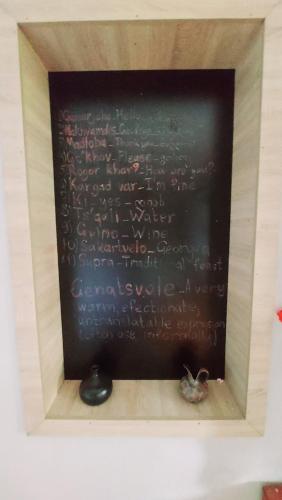 Gamarjoba - Hello
Nakhvamdis - Goodbye
3) Madloba - Thank you
- Please -
5) Rogor khar? - How are you?
6) Kargad var - I'm fine
7) Ki - yes -
8) Ts'qali - Water
9) Gvino - Wine
10) Sakartvelo - Georgia
11) Supra - Traditional feast
Genatsvale - A very
warm, efectionate,
untranslatable expresion
(often use informally)